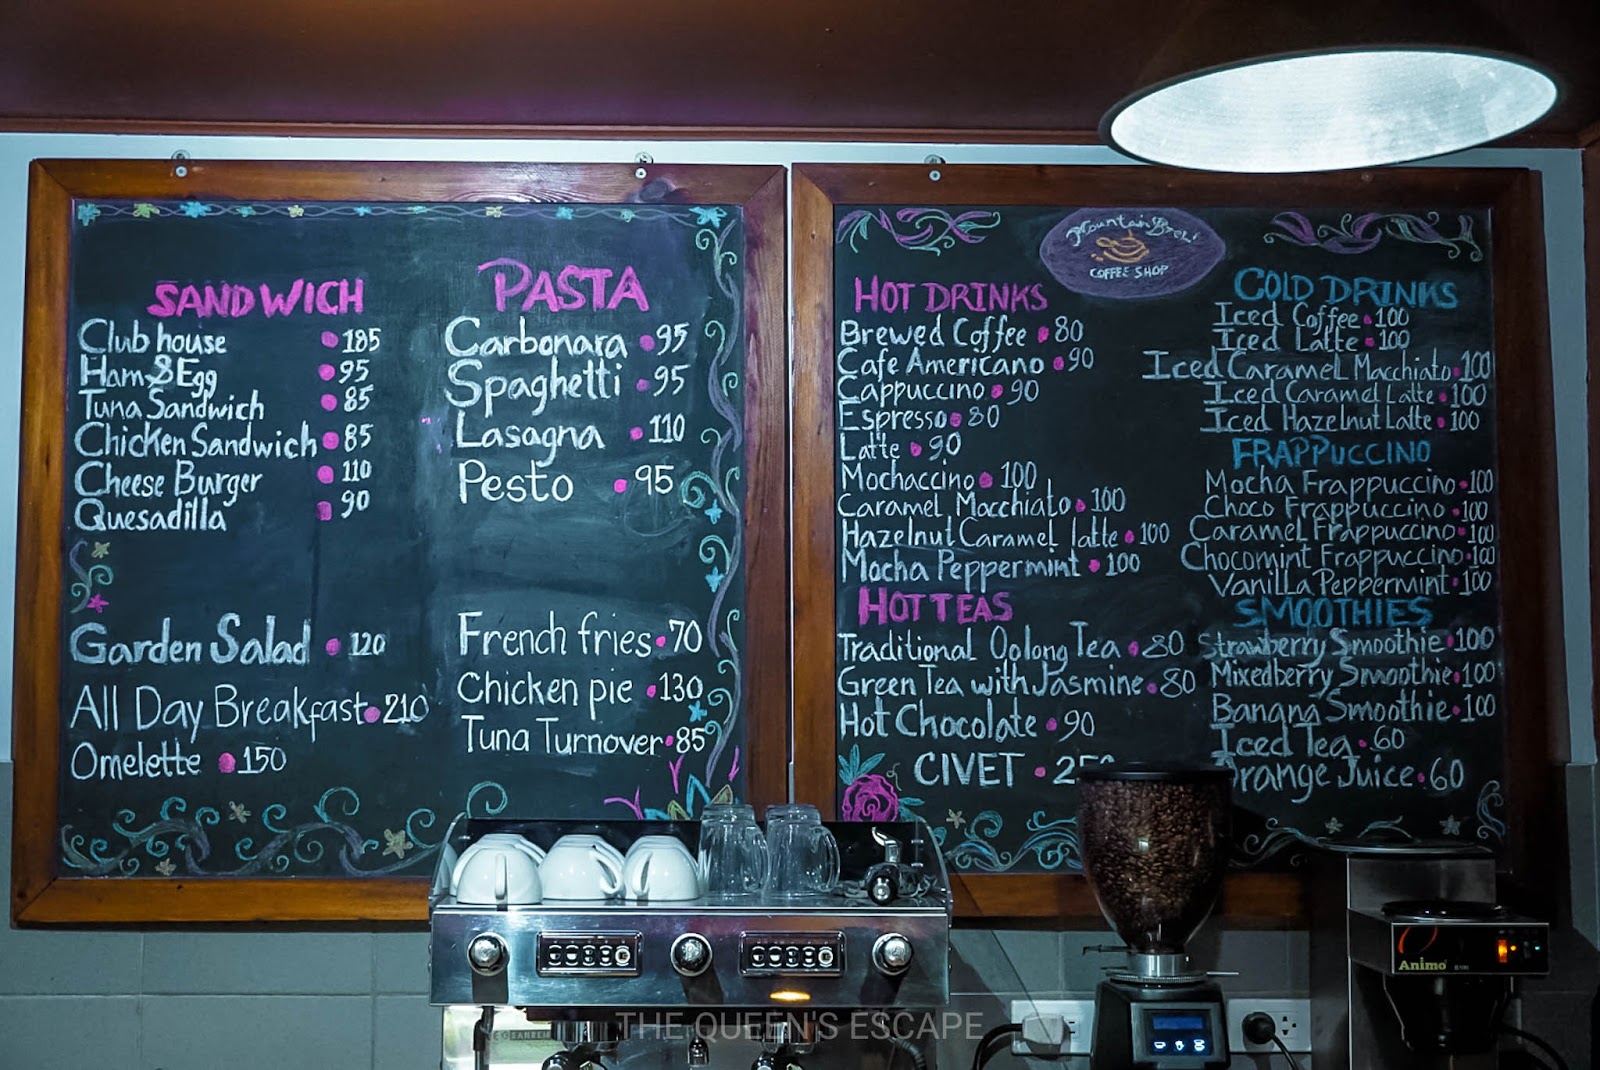 SANDWICH
Club house • 185
Ham & Egg • 95
Tuna Sandwich • 85
Chicken Sandwich • 85
Cheese Burger • 110
Quesadilla • 90
Garden Salad • 120
All Day Breakfast • 210
Omelette • 150
PASTA
Carbonara • 95
Spaghetti • 95
Lasagna • 110
Pesto • 95
French fries • 70
Chicken pie • 130
Tuna Turnover • 85
Mountain Brew
COFFEE SHOP
HOT DRINKS
Brewed Coffee • 80
Cafe Americano • 90
Cappuccino • 90
Espresso • 80
Latte • 90
Mochaccino • 100
Caramel Macchiato • 100
Hazelnut Caramel latte • 100
Mocha Peppermint • 100
HOT TEAS
Traditional Oolong Tea • 80
Green Tea with Jasmine • 80
Hot Chocolate • 90
CIVET •
COLD DRINKS
Iced Coffee • 100
Iced Latte • 100
Iced Caramel Macchiato • 100
Iced Caramel Latte • 100
Iced Hazelnut Latte • 100
FRAPPUCCINO
Mocha Frappuccino • 100
Choco Frappuccino • 100
Caramel Frappuccino • 100
Chocomint Frappuccino • 100
Vanilla Peppermint • 100
SMOOTHIES
Strawberry Smoothie • 100
Mixedberry Smoothie • 100
Banana Smoothie • 100
Iced Tea • 60
Orange Juice • 60
Animo
THE QUEEN'S ESCAPE